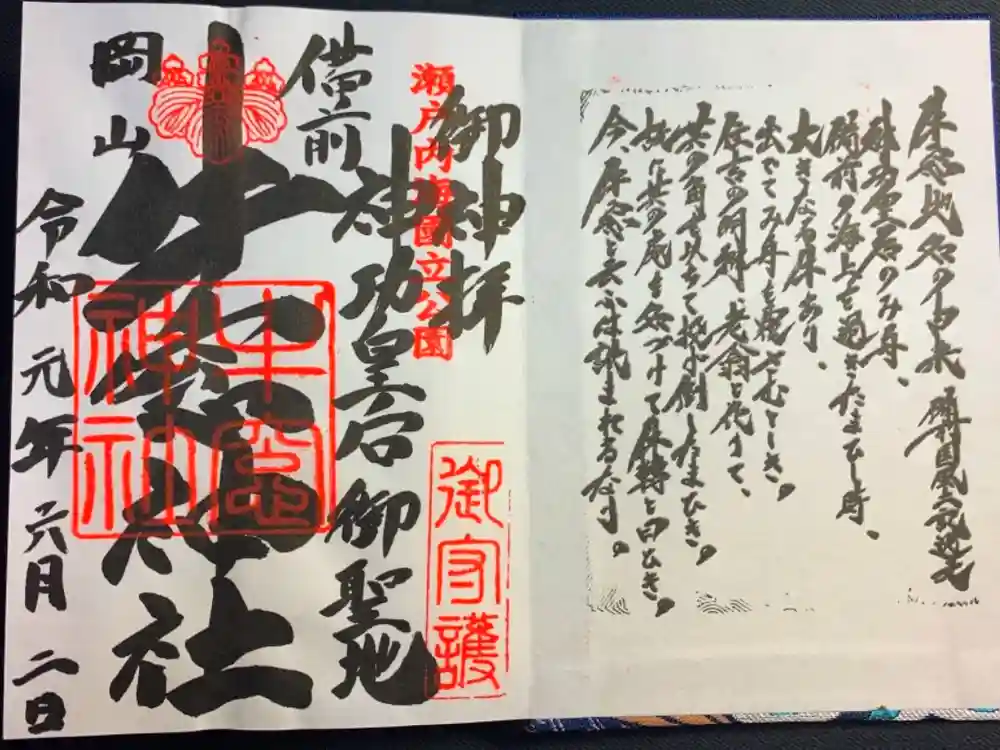 牛窓地名の由来 備前国風土記逸文
神功皇后のみ舟、
備前の海上を過ぎたまひし時、
大きなる牛あり、
出でてみ舟を覆さむとしき。
住吉の明神、老翁と化りて、
其の角を以ちて投げ倒したまひき。
故に其の處を名づけて牛轉と曰ひき。
今、牛窓と云ふは訛まれるなり。
御神拝
瀬戸内海國立公園
御守護
神功皇后御聖地
備前
牛窓神社
牛窓
神社
岡山
令和元年六月二日